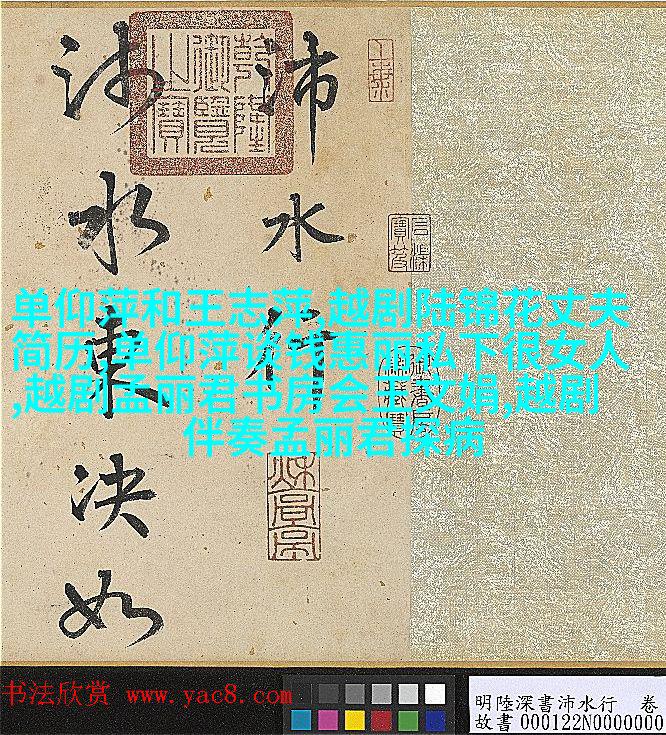 沛水行
沛水東決如
乾隆御覽之寶
单仰萍和王志萍,越剧陆锦花丈夫
简历,单仰萍谈钱惠丽私下很女人
,越剧孟丽君书房会王文娟,越剧
伴奏孟丽君探病
书法欣赏 www.yac8.com
明陸深書沛水行 卷
故書000122N0000000